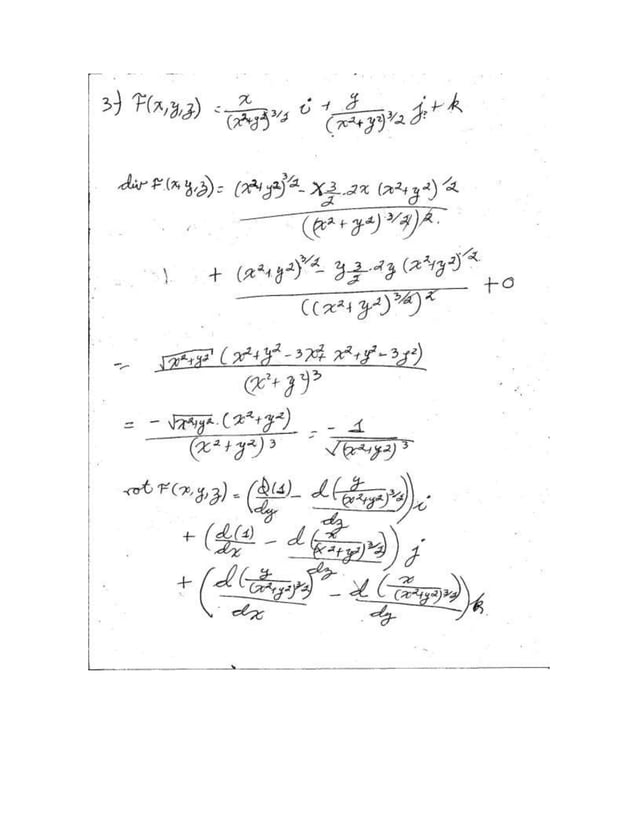 3) F(x,y,z) = x/(x²+y²)^3/2 i + y/(x²+y²)^3/2 j + k
div F(x,y,z) = ((x²+y²)^3/2 - x 3/2 .2x (x²+y²)^1/2)/((x²+y²)^3/2)^2
+ ((x²+y²)^3/2 - y 3/2 .2y (x²+y²)^1/2)/((x²+y²)^3/2)^2 + 0
= √(x²+y²) (x²+y² - 3x² + x²+y² - 3y²)/(x²+y²)^3
= -√(x²+y²) . (x²+y²)/(x²+y²)^3 = - 1/√(x²+y²)^3
rot F(x,y,z) = (d(1)/dy - d(y/(x²+y²)^3/2)/dz) i
+ (d(1)/dx - d(x/(x²+y²)^3/2)/dz) j
+ (d(y/(x²+y²)^3/2)/dx - d(x/(x²+y²)^3/2)/dy) k